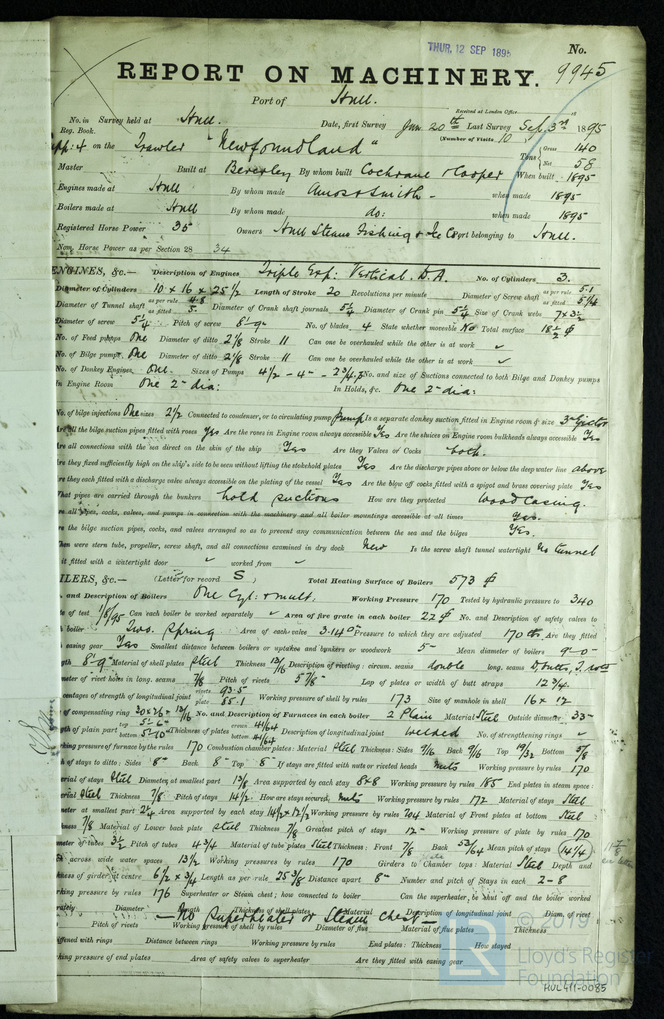 THUR. 12 SEP 1895
No.
REPORT ON MACHINERY. 9945
Port of Hull.
Received at London Office
No. in Survey held at Hull. Date, first Survey Jun 20th Last Survey Sep. 3rd 1895
Reg. Book. (Number of Visits 10
on the Trawler "Newfoundland" Tons Gross 140
Net 58
Master Built at Beverley By whom built Cochrane & Cooper When built 1895
Engines made at Hull By whom made Amos & Smith - when made 1895
Boilers made at Hull By whom made do: when made 1895
Registered Horse Power 35 Owners Hull Steam Fishing & Ice Co Port belonging to Hull.
Nom. Horse Power as per Section 28 34
ENGINES, &c.— Description of Engines Triple Exp: Vertical. D.A. No. of Cylinders 3.
Diameter of Cylinders 10 x 16 x 25 1/2 Length of Stroke 20 Revolutions per minute Diameter of Screw shaft as per rule 5.1 as fitted 5 1/4
Diameter of Tunnel shaft as per rule 4.8 as fitted 5. Diameter of Crank shaft journals 5 1/4 Diameter of Crank pin 5 1/4 Size of Crank webs 7 x 3 1/2
Diameter of screw Pitch of screw 8'-9" No. of blades 4 State whether moveable No Total surface 18 1/2 ф
No. of Feed pumps One Diameter of ditto 2 1/8 Stroke 11 Can one be overhauled while the other is at work ✓
No. of Bilge pumps One Diameter of ditto 2 1/8 Stroke 11 Can one be overhauled while the other is at work ✓
No. of Donkey Engines One. Sizes of Pumps 4 1/2 - 4" - 2 3/4 No. and size of Suctions connected to both Bilge and Donkey pumps
In Engine Room One 2" dia: In Holds, &c. One 2" dia:
No. of bilge injections One sizes 2 1/2 Connected to condenser, or to circulating pump pump Is a separate donkey suction fitted in Engine room & size 3" Ejector
Are all the bilge suction pipes fitted with roses Yes Are the roses in Engine room always accessible Yes Are the sluices on Engine room bulkheads always accessible Yes
Are all connections with the sea direct on the skin of the ship Yes Are they Valves or Cocks both.
Are they fixed sufficiently high on the ship's side to be seen without lifting the stokehold plates Yes Are the discharge pipes above or below the deep water line above
Are they each fitted with a discharge valve always accessible on the plating of the vessel Yes Are the blow off cocks fitted with a spigot and brass covering plate Yes
What pipes are carried through the bunkers hold suctions How are they protected Wood casing.
Are all pipes, cocks, valves, and pumps in connection with the machinery and all boiler mountings accessible at all times Yes.
Are the bilge suction pipes, cocks, and valves arranged so as to prevent any communication between the sea and the bilges Yes.
When were stern tube, propeller, screw shaft, and all connections examined in dry dock New Is the screw shaft tunnel watertight No tunnel
it fitted with a watertight door ✓ worked from ✓
BOILERS, &c.— (Letter for record S ) Total Heating Surface of Boilers 573 ф
and Description of Boilers One Cyl: & mult. Working Pressure 170 Tested by hydraulic pressure to 340
of test 1/8/95 Can each boiler be worked separately ✓ Area of fire grate in each boiler 22 ф No. and Description of safety valves to
boiler Two. Spring Area of each valve 3.14 Pressure to which they are adjusted 170 lbs. Are they fitted
casing gear Yes Smallest distance between boilers or uptakes and bunkers or woodwork 5" Mean diameter of boilers 9'-0"
8'-9" Material of shell plates Steel Thickness 13/16 Description of riveting: circum. seams double long. seams
diameter of rivet holes in long. seams 7/8 Pitch of rivets 5 7/8" Lap of plates or width of butt straps 12 3/4.
percentages of strength of longitudinal joint rivets 93.5 plate 85.1 Working pressure of shell by rules 173 Size of manhole in shell 16 x 12
of compensating ring 30x26 x 13/16 No. and Description of Furnaces in each boiler 2 Plain Material Steel Outside diameter 33"
of plain part top 5'-6" bottom Thickness of plates crown 41/64 bottom 41/64 Description of longitudinal joint welded No. of strengthening rings ✓
working pressure of furnace by the rules 170 Combustion chamber plates: Material Steel Thickness: Sides 9/16 Back 9/16 Top 19/32 Bottom 5/8
of stays to ditto: Sides 8" Back 8" Top 8" If stays are fitted with nuts or riveted heads nuts Working pressure by rules 170
material of stays Steel Diameter at smallest part 1 3/8 Area supported by each stay 8x8 Working pressure by rules 185 End plates in steam space:
material Steel Thickness 7/8 Pitch of stays 14 1/2 How are stays secured, nuts Working pressure by rules 172 Material of stays Steel
diameter at smallest part 2 1/4 Area supported by each stay 14 1/2 x 12 1/2 Working pressure by rules Material of Front plates at bottom Steel
thickness 7/8 Material of Lower back plate Steel Thickness 7/8 Greatest pitch of stays 12" Working pressure of plate by rules 170
diameter of tubes 3 1/2 Pitch of tubes 4 3/4 Material of tube plates Steel Thickness: Front 7/8 Back 53/64 Mean pitch of stays 14 1/4
across wide water spaces 13 1/2 Working pressures by rules 170 Girders to Chamber tops: Material Steel Depth and
thickness of girder at centre 6 1/2 x 3/4 Length as per rule 25 3/8 Distance apart 8" Number and pitch of Stays in each 2 - 8
Working pressure by rules 176 Superheater or Steam chest; how connected to boiler Can the superheater be shut off and the boiler worked
separately Diameter Length Thickness of shell plates Material Description of longitudinal joint Diam. of rivet
— No Superheater or Steam chest —
Pitch of rivets Working pressure of shell by rules Diameter of flue Material of flue plates Thickness
stiffened with rings Distance between rings Working pressure by rules End plates: Thickness How stayed
Working pressure of end plates Area of safety valves to superheater Are they fitted with easing gear
© 2019
LR
Lloyd's Register
Foundation
HUL411-0085